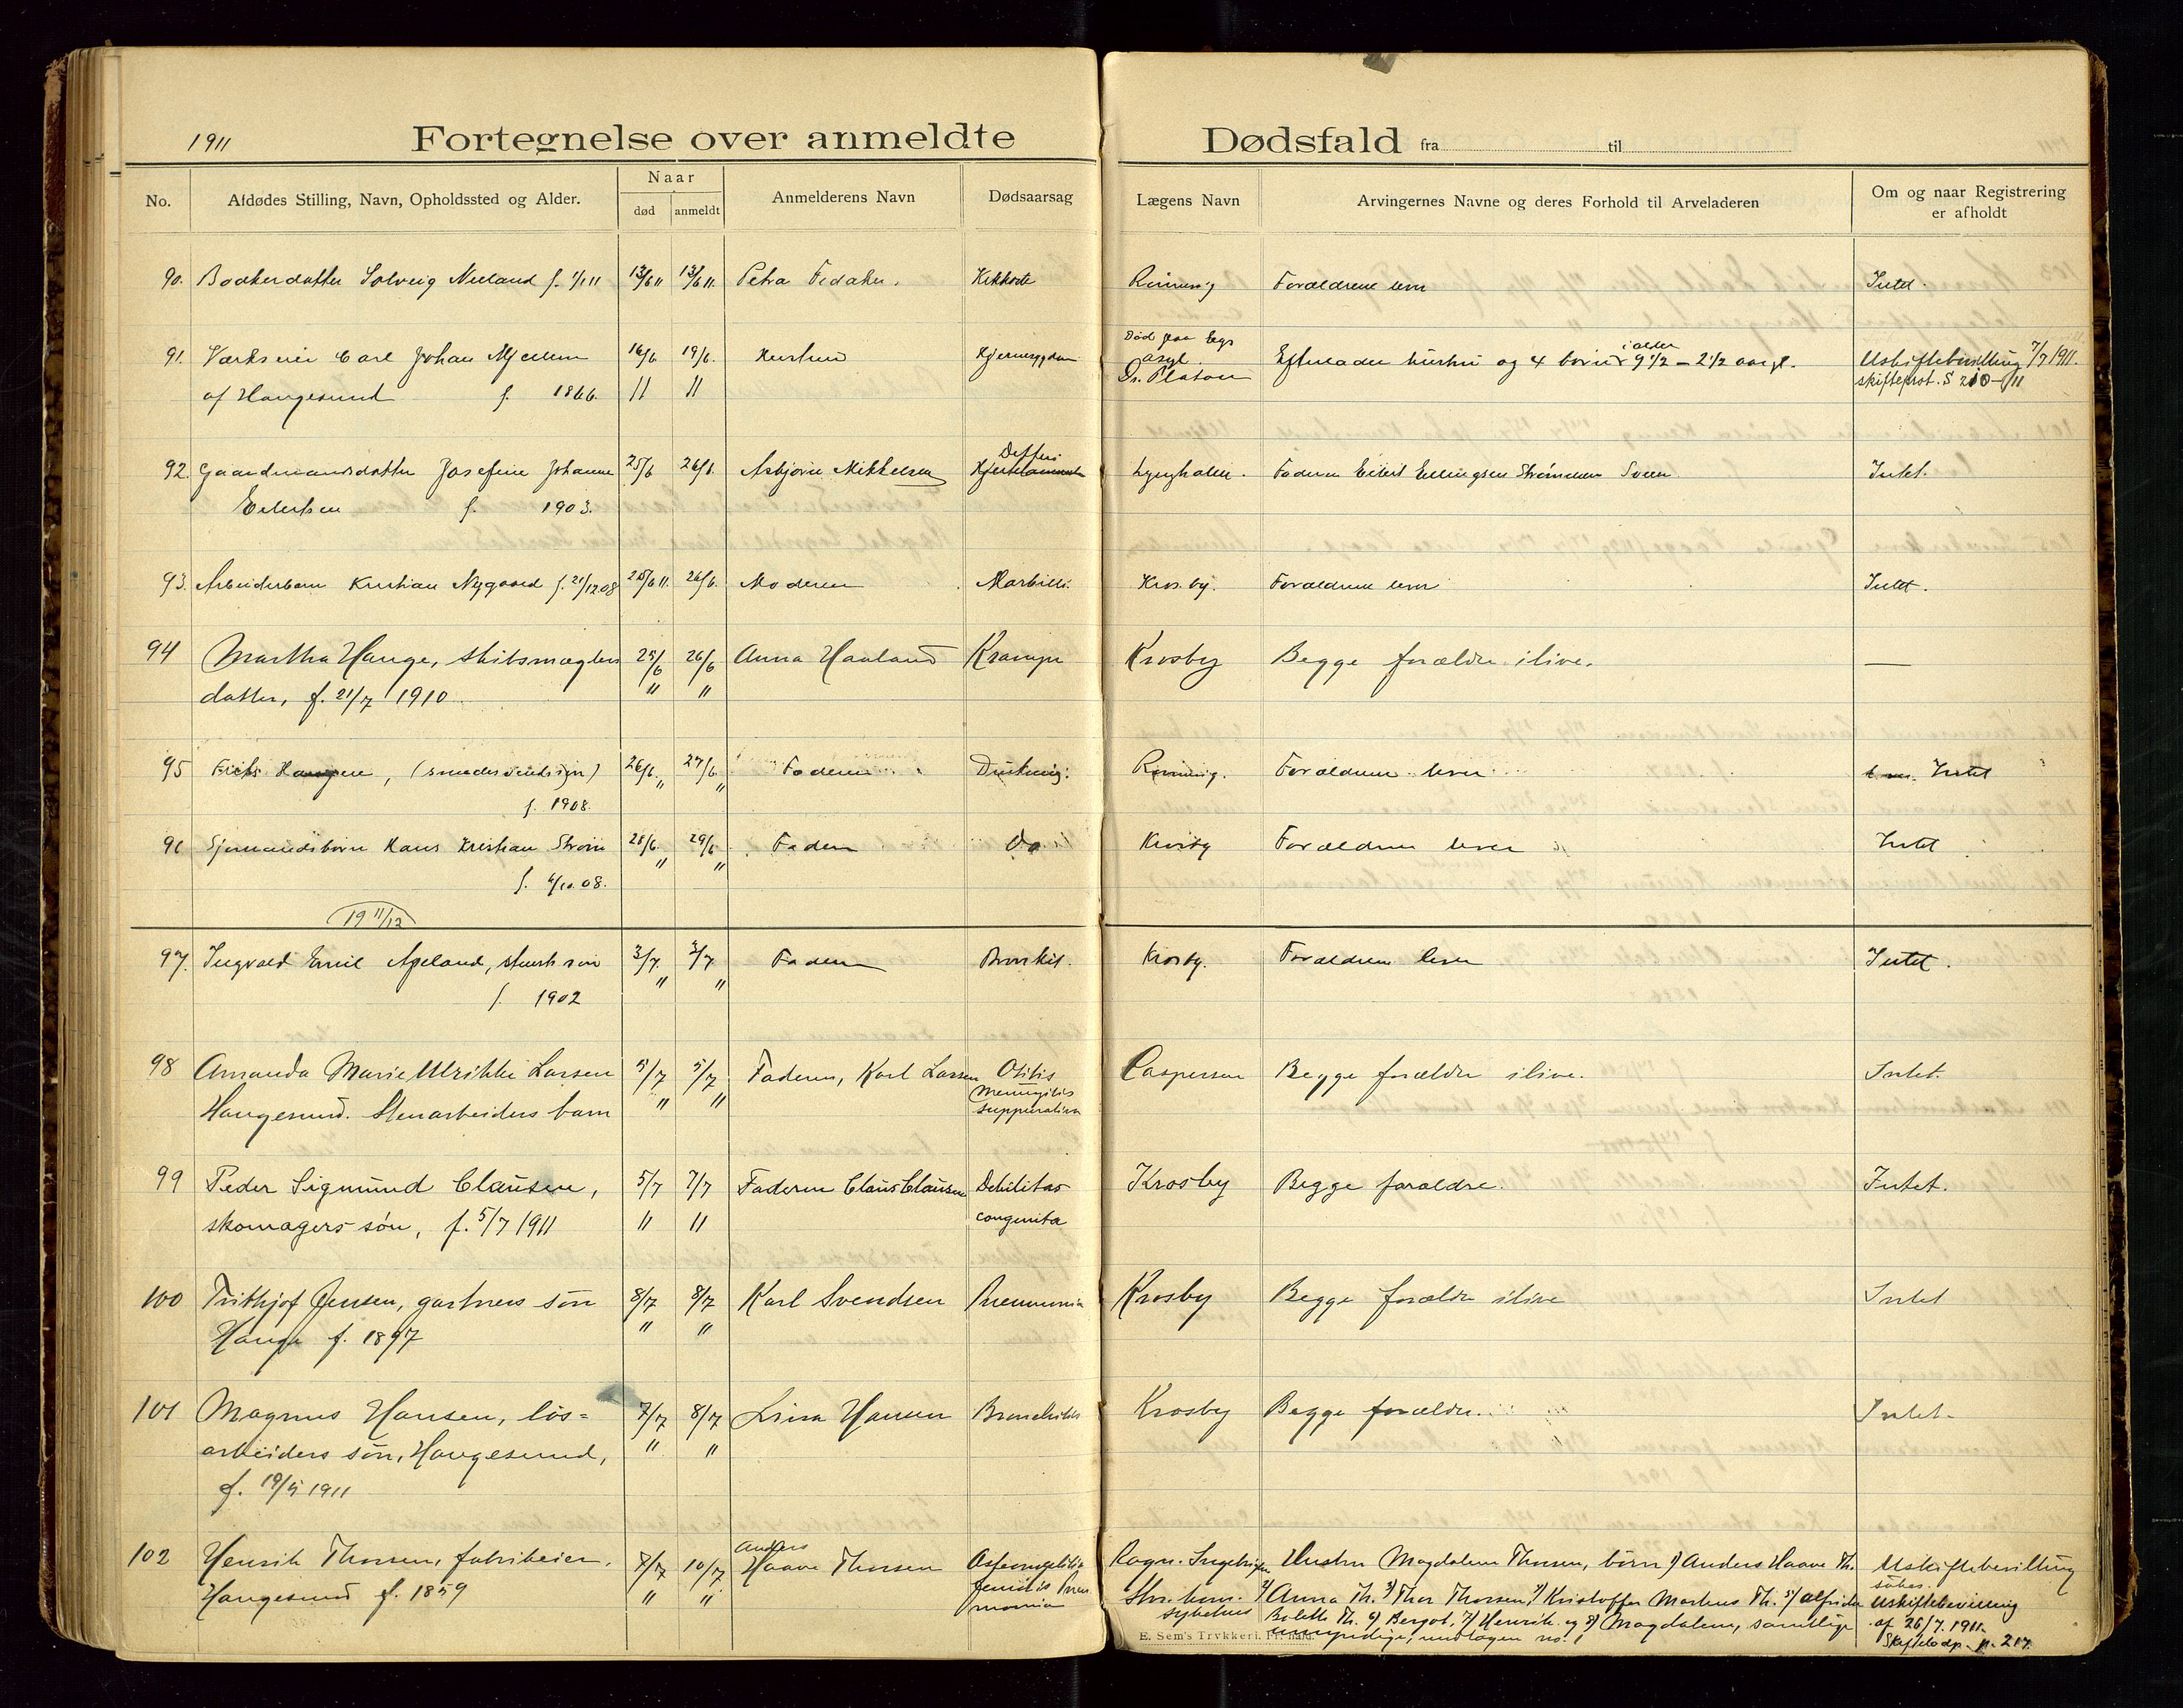 1911
Fortegnelse over anmeldte Dødsfald fra til
No.
Afdødes Stilling, Navn, Opholdssted og Alder.
Naar
død anmeldt
Anmelderens Navn
Dødsaarsag
Lægens Navn
Arvingernes Navne og deres Forhold til Arveladeren
Om og naar Registrering
er afholdt
90. Solveig f. 1/1 11 13/6 11 13/6 11. Petra Kikhoste Forældrene lever Intet.
91. Carl Johan 16/6 19/6. Hustru Død paa Egs
asyl.
Dr. Platou Efterlader hustru og 4 børn i alder 9 1/2 – 2 1/2 aar gl. Uskiftebevilling 7/7 1911.
af Haugesund f. 1866. 11 11 skifteprot. S 210 – 11
92. Gaardmandsdatter Josefine Johanne 25/6 26/6. Asbjørn Mikkelsen Lyngholm. Faderen Eilert Ellingsen Sveen Intet.
Eilertsen f. 1903.
93. Arbeiderbarn Kristian Nygaard f. 21/12 08 25/6 11. 26/6. Moderen Morbilli. Krosby. Forældrene lever Intet.
94 Martha Hauge, skibsmæglers 25/6 26/6 Anna Haaland Kramper Krosby Begge forældre ilive. —
datter, f. 21/7 1910 " "
95 26/6. 27/6. Faderen Forældrene lever Intet
f. 1908. " "
96 Sjømandsbarn Hans Kristian Strøm 28/6. 29/6 Faderen Do Krosby Forældrene lever Intet
f. 4/10. 08. " "
19 11/12
97. Ingvald Emil Apeland, søn 3/7. 3/7 Faderen Bronkit. Krosby. Forældrene lever Intet.
f. 1902 " "
98 Amanda Marie Ulrikke Larsen 5/7 5/7 Faderen, Karl Larsen Otitis
Meningitis
suppurativa Caspersen Begge forældre ilive. Intet.
Haugesund. Stenarbeiders barn " "
99 Peder Sigmund Clausen, 5/7 7/7 Faderen Claus Clausen Debilitas Krosby Begge forældre. Intet.
skomagers søn, f. 5/7 1911 11 11 congenita
100 Frithjof Jensen, gartners søn 8/7 8/7 Karl Svendsen Pneumonia Krosby Begge forældre ilive Intet
Hauge f. 1897 " "
101 Magnus Hansen, løs= 7/7 8/7 Hansen Bronchitis Krosby Begge forældre. Intet.
arbeiders søn, Haugesund, " "
f. 19/5 1911
102 Henrik Thorsen, fabrikeier. 7/7 10/7 Anders
Haave Thorsen Ragn. Ingebrigtsen Hustru Magdalene Thorsen, børn 1) Anders Haave Th. Uskiftebevilling
søkes.
Haugesund f. 1859 " " Pneu
monia sykehus 2) Anna Th. 3) Thor Thorsen, 4) Kristoffer Martens Th. 5) Alfrida Uskiftebevilling
Bolette Th. 6) Bergot, 7) Henrik og 8) Magdalene, samtlige af 26/7. 1911.
umyndige, undtagen no. 1 p. 217.
E. Sem's Trykkeri, Fr.hald.